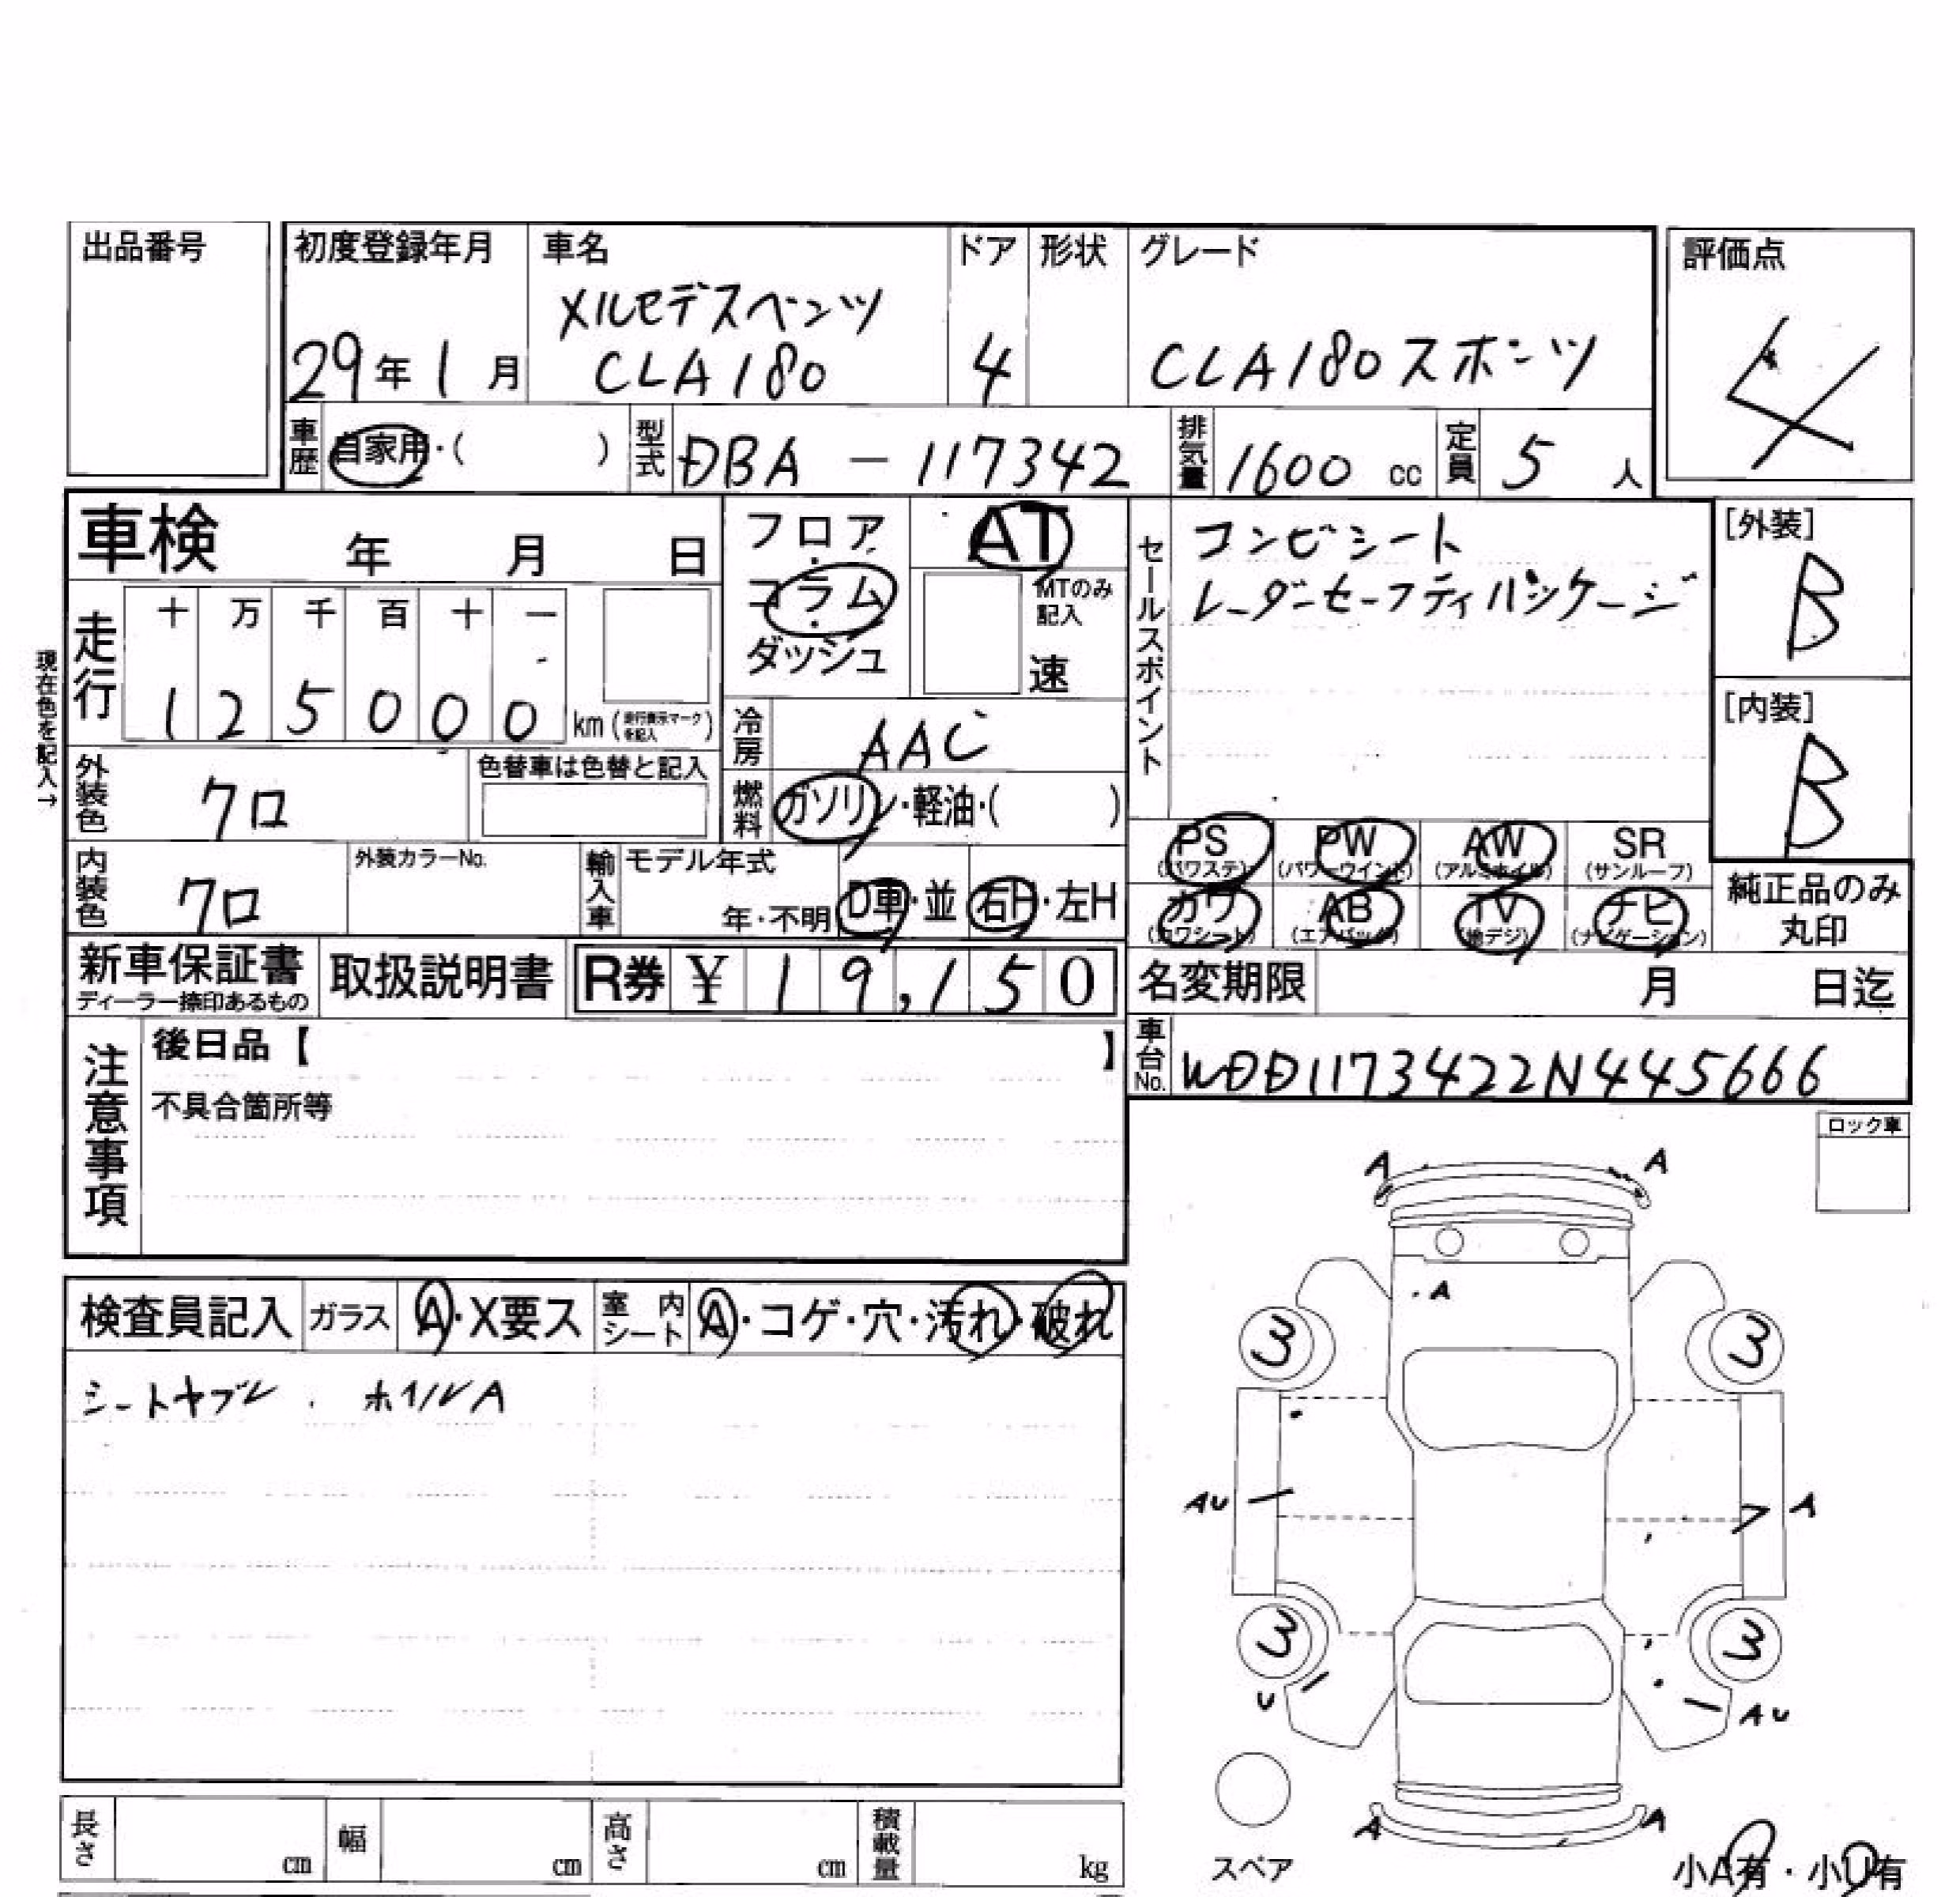 出品番号
初度登録年月 車名 ドア 形状 グレード 評価点
メルセデスベンツ
29年1月 CLA180 4 CLA180スポーツ 4
車歴 自家用・( ) 型式 DBA - 117342 排気量 1600 cc 定員 5 人
車検 年 月 日
フロア・コラム・ダッシュ
AT
MTのみ記入
速
セールスポイント
コンビシート
レーダーセーフティパッケージ
[外装]
B
[内装]
B
現在色を記入→
走行 十 万 千 百 十 一
1 2 5 0 0 0 km (走行表示マークを記入)
冷房 AAC
外装色 クロ 色替車は色替と記入
燃料 ガソリン・軽油・( )
PS (パワステ) PW (パワーウインド) AW (アルミホイル) SR (サンルーフ)
カワ (カワシート) AB (エアバッグ) TV (地デジ) ナビ (ナビゲーション)
純正品のみ
丸印
内装色 クロ 外装カラーNo. 輸入車 モデル年式 年・不明 D車・並 右H・左H
新車保証書 ディーラー捺印あるもの 取扱説明書 R券 ¥ 19,150
名変期限 月 日迄
車台No. WDD1173422N445666
注意事項
後日品【 】
不具合箇所等
ロック車
A A
A
検査員記入 ガラス A・X要ス 室内シート A・コゲ・穴・汚れ・破れ
シートヤブレ . ホイルA
3 3
AU A
3 3
U AU
A A
スペア
小A有・小U有
長さ cm 幅 cm 高さ cm 積載量 kg